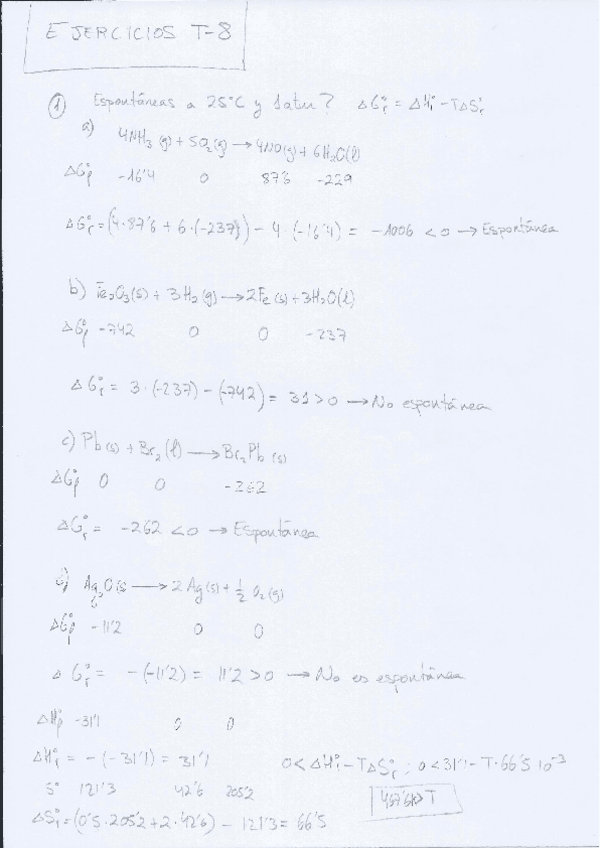 EJERCICIOS T-8
① Espontáneas a 25°C y 1atm? ΔG°r = ΔH°r - TΔS°r
a)
4NH₃(g) + 5O₂(g) → 4NO(g) + 6H₂O(l)
ΔG°f -16'4 0 87'6 -229
ΔG°r = (4·87'6 + 6·(-237)) - 4·(-16'4) = -1006 < 0 → Espontánea
b) Fe₂O₃(s) + 3H₂(g) → 2Fe(s) + 3H₂O(l)
ΔG°f -742 0 0 -237
ΔG°r = 3·(-237) - (-742) = 31 > 0 → No espontánea
c) Pb(s) + Br₂(l) → Br₂Pb(s)
ΔG°f 0 0 -262
ΔG°r = -262 < 0 → Espontánea
Ag₂O(s → 2Ag(s) + ½ O₂(g)
ΔG°f -11'2 0 0
ΔG°r = -(-11'2) = 11'2 > 0 → No es espontánea
ΔH°f -31'1 0 0
ΔH°r = -(-31'1) = 31'1 0 < ΔH°r - TΔS°r ; 0 < 31'1 - T·66'5 10⁻³
S° 121'3 42'6 205'2 > T
ΔS°r = (0'5·205'2 + 2·42'6) - 121'3 = 66'5